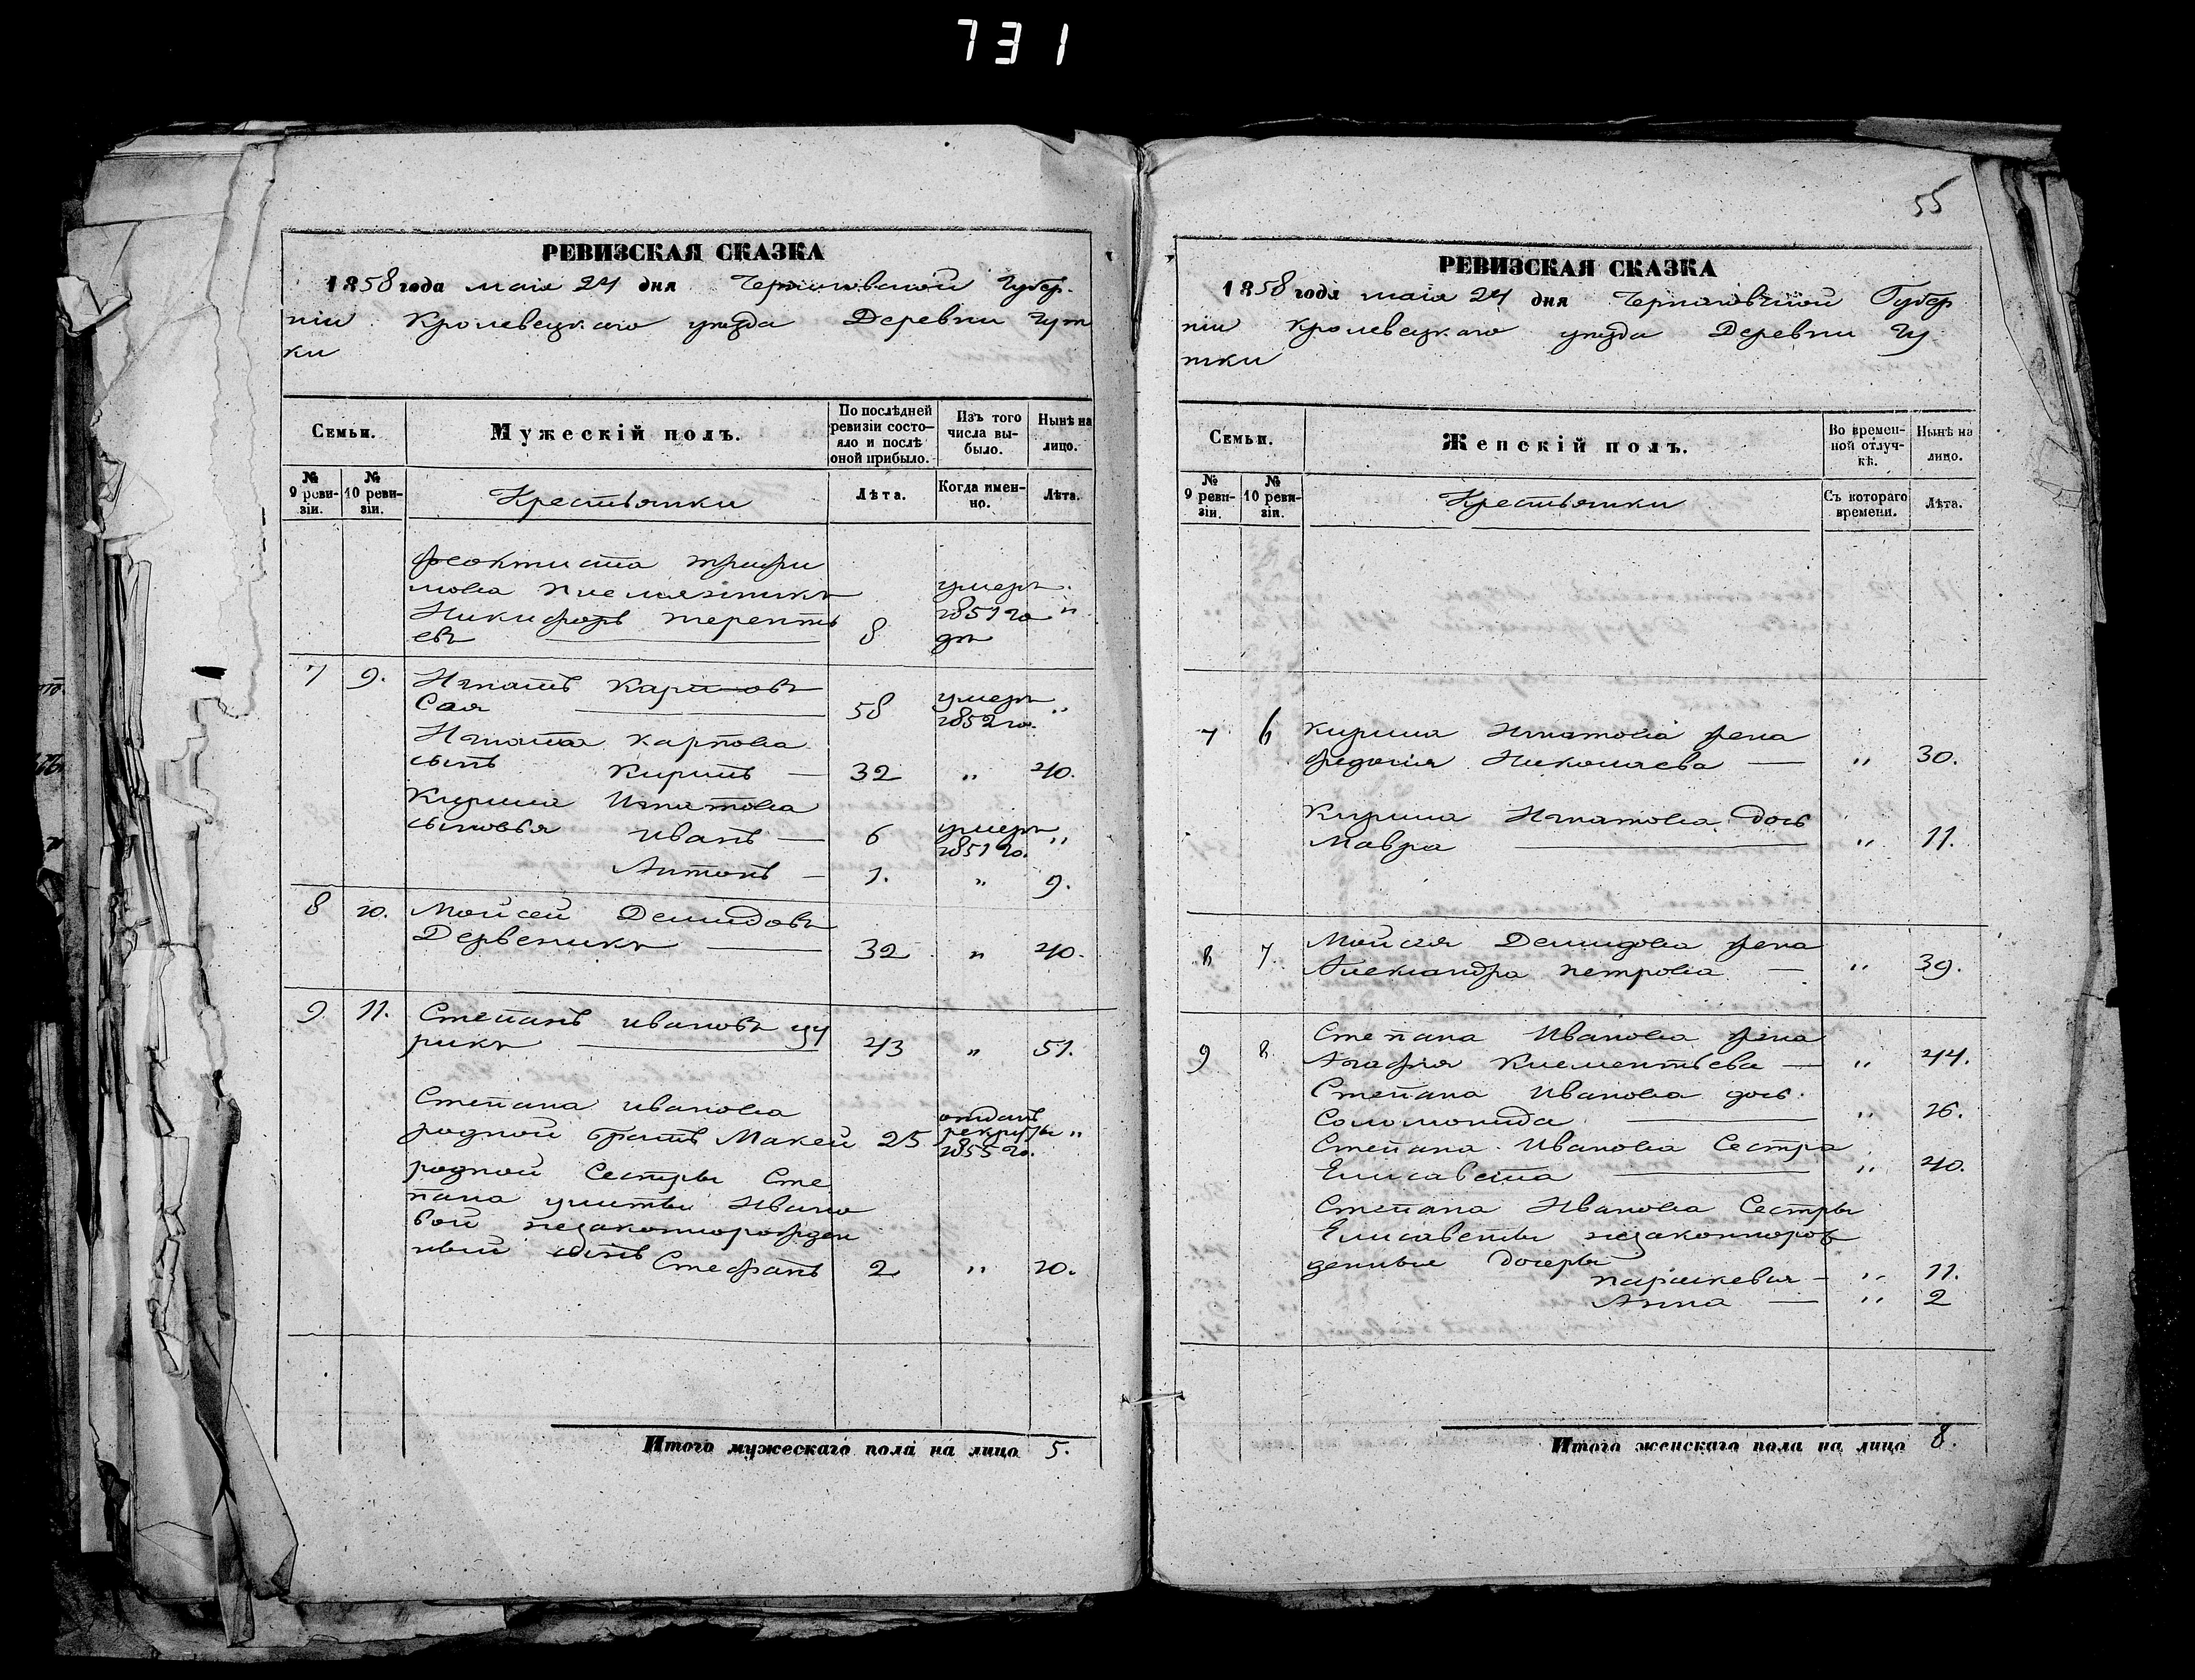 731
РЕВИЗСКАЯ СКАЗКА
1858 года маія 24 дня Черниговской Губер-
ніи Кролевецкаго уезда Деревни Гут
ки
Семьи.
Мужескій полъ.
По послѣдней ревизіи состояло и послѣ оной прибыло.
Изъ того числа выбыло.
Нынѣ на лицо.
№ 9 ревизіи.
№ 10 ревизіи.
Крестьянки
Лѣта.
Когда именно.
Лѣта.
Феоктиста Трофи
мова племянникъ
Никифоръ Теренть
евъ 8 умеръ 1851 го да "
7 9. Игнатъ Карповъ
Сая 58 умеръ 1852 го. "
Игната Карпова
сынъ Кирилъ — 32 " 40.
Кирила Игнатова
сыновья Иванъ — 6 умеръ 1851 го. "
Антонъ — 1. " 9.
8 10. Мойсей Демидовъ
32 " 40.
9 11. Степанъ Ивановъ Цу
рикъ 43 " 51.
Степана Иванова
родной братъ Макей 25 отданъ рекруты 1855 го. "
родной Сестры Сте
пана Ивано
вой незаконнорожден
ный сынъ Стефанъ 2 " 10.
Итого мужескаго пола на лицо 5.
55
РЕВИЗСКАЯ СКАЗКА
1858 года маія 24 дня Черниговской Губер
ніи Кролевецкаго уезда Деревни Гу
тки
Семьи.
Женскій полъ.
Во временной отлучкѣ.
Нынѣ на лицо.
№ 9 ревизіи.
№ 10 ревизіи.
Крестьянки
Съ котораго времени.
Лѣта.
7 6 Кирила Игнатова жена
Федосія Николаева — " 30.
Кирила Игнатова дочь
Мавра " 11.
8 7. Мойсея Демидова жена
Александра Петрова — " 39.
9 8 Степана Иванова жена
Агафія Клементьева — " 44.
Степана Иванова дочь
Соломонида " 16.
Степана Иванова Сестра
Елисавета " 40.
Степана Иванова Сестры
Елисаветы незаконнорож
денные дочеры
Параскевія — " 11.
Анна — " 2
Итого женскаго пола на лицо 8.